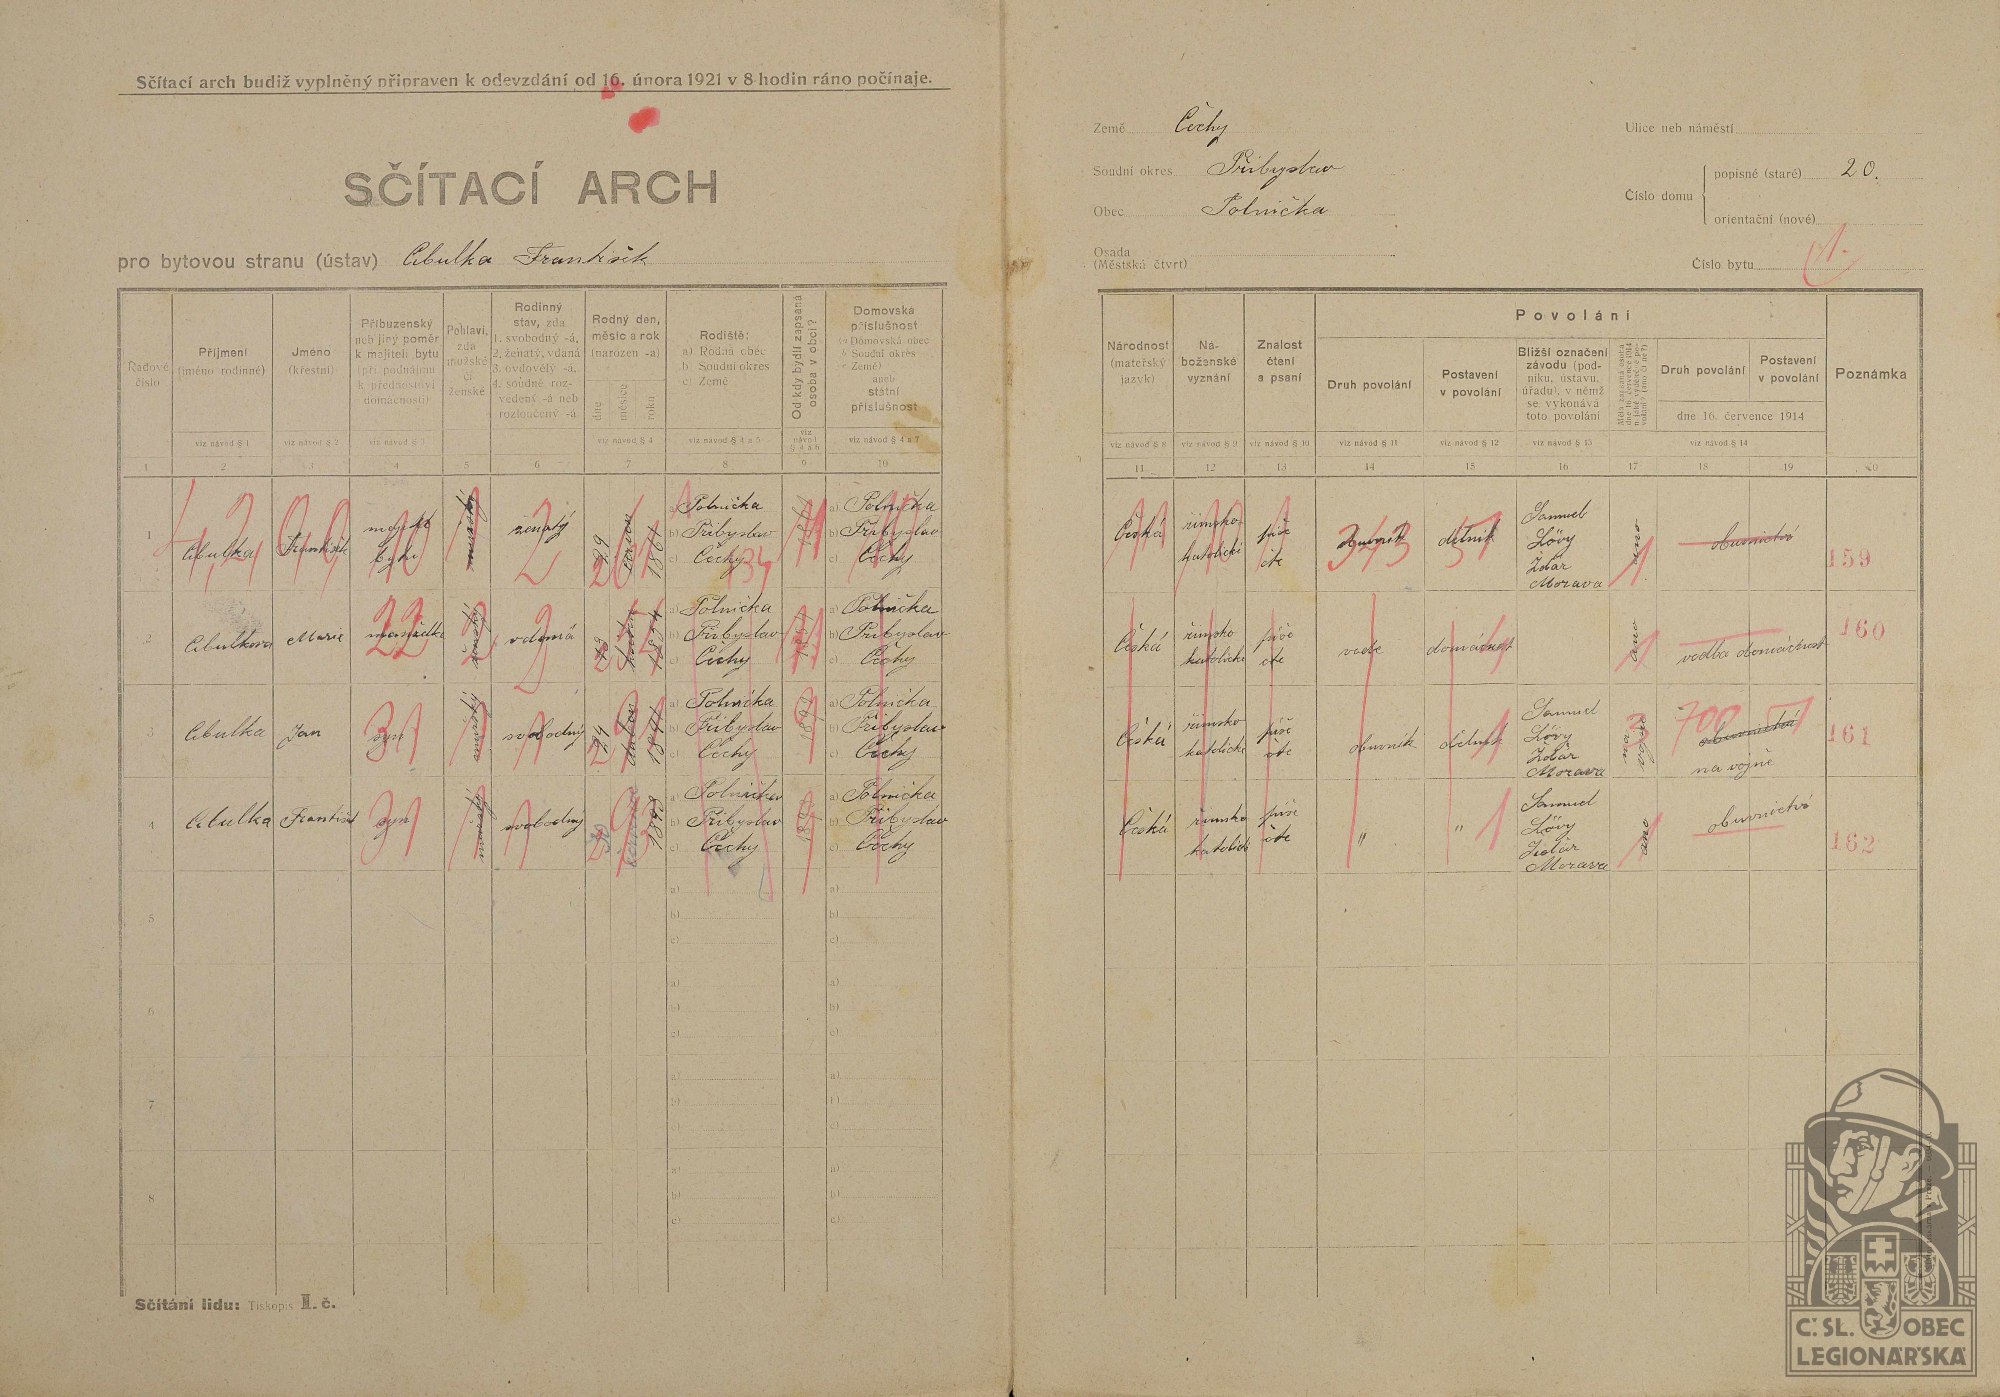 Sčítací arch budiž vyplněný připraven k odevzdání od 16. února 1921 v 8 hodin ráno počínaje.
SČÍTACÍ ARCH
pro bytovou stranu (ústav) Cibulka František
Země Čechy
Soudní okres Přibyslav
Obec Polnička
Osada
(Městská čtvrť)
Ulice neb náměstí
Číslo domu
popisné (staré) 20.
orientační (nové)
Číslo bytu 1.
Řadové
číslo
Příjmení
(jméno rodinné)
Jméno
(křestní)
Příbuzenský
neb jiný poměr
k majiteli bytu
(při podnájmu
k přednostovi
domácnosti)
Pohlaví,
zda
mužské
či
ženské
Rodinný
stav, zda
1. svobodný -á,
2. ženatý, vdaná
3. ovdovělý -á,
4. soudně roz-
vedený -á neb
rozloučený -á
Rodný den,
měsíc a rok
(narozen -a)
dne
měsíce
roku
Rodiště:
a) Rodná obec
b) Soudní okres
c) Země
Od kdy bydlí zapsaná
osoba v obci?
Domovská
příslušnost
(a Domovská obec
b Soudní okres
c Země)
aneb
státní
příslušnost
viz návod § 1
viz návod § 2
viz návod § 3
viz návod § 4
viz návod § 4 a 5
viz
návod
§ 4 a 6
viz návod § 4 a 7
1 2 3 4 5 6 7 8 9 10
Národnost
(mateřský
jazyk)
Ná-
boženské
vyznání
Znalost
čtení
a psaní
Povolání
Druh povolání
Postavení
v povolání
Bližší označení
závodu (pod-
niku, ústavu,
úřadu), v němž
se vykonává
toto povolání
Druh povolání
Postavení
v povolání
dne 16. července 1914
Poznámka
viz návod § 8
viz návod § 9
viz návod § 10
viz návod § 11
viz návod § 12
viz návod § 13
viz návod § 14
11 12 13 14 15 16 17 18 19 20
1 Cibulka František majitel bytu mužský ženatý 29 1864
a) Polnička
b) Přibyslav
c) Čechy
a) Polnička
b) Přibyslav
c) Čechy
Česká římsko katolické píše čte obuvník dělník
Samuel
Löwy
Žďár
Morava
ano obuvnictví 159
2 Cibulkova Marie manželka ženský vdaná 23 1874
a) Polnička
b) Přibyslav
c) Čechy
a) Polnička
b) Přibyslav
c) Čechy
Česká římsko katolické píše čte vede domácnost ano vedba domácnost 160
3 Cibulka Jan syn mužský svobodný 24 duben 1894
a) Polnička
b) Přibyslav
c) Čechy
a) Polnička
b) Přibyslav
c) Čechy
Česká římsko katolické píše čte obuvník dělník
Samuel
Löwy
Žďár
Morava
na vojně 700 obuvnictví
na vojně 161
4 Cibulka František syn mužský svobodný 1898
a) Polnička
b) Přibyslav
c) Čechy
a) Polnička
b) Přibyslav
c) Čechy
Česká římsko katolické píše čte " "
Samuel
Löwy
Žďár
Morava
ano obuvnictví 162
5
a)
b)
c)
6
a)
b)
c)
7
a)
b)
c)
8
a)
b)
c)
Sčítání lidu: Tiskopis II. č.
Č. SL. OBEC
LEGIONÁŘSKÁ